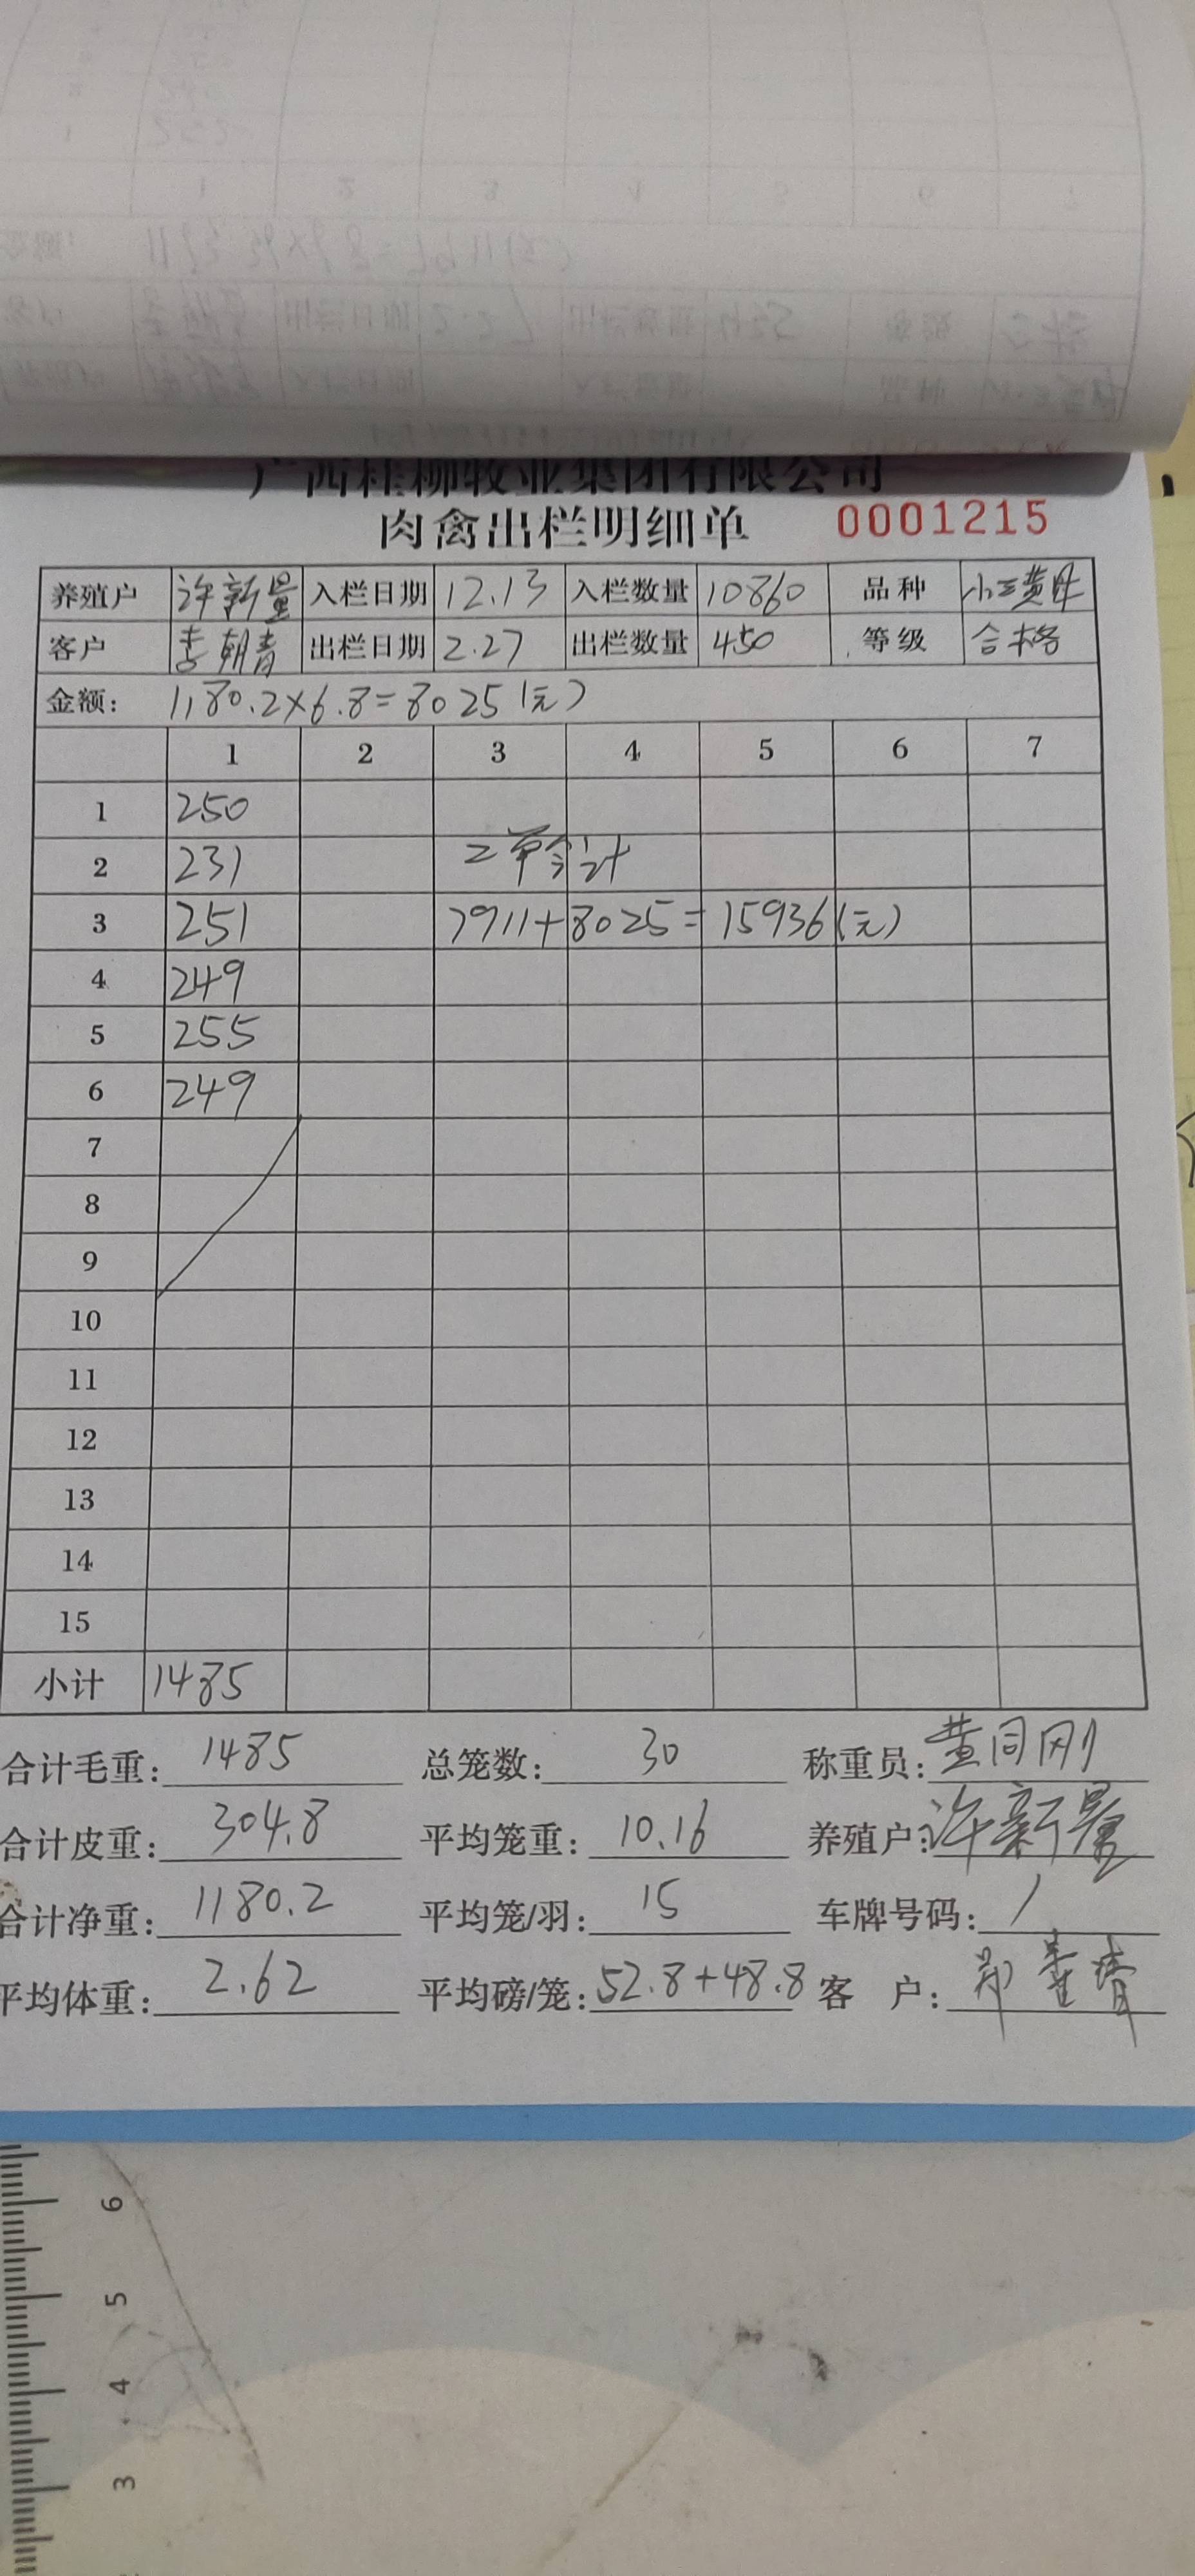 广西桂柳牧业集团有限公司
肉禽出栏明细单 0001215
养殖户 许新量 入栏日期 12.13 入栏数量 10860 品种 小三黄
客户 李朝青 出栏日期 2.27 出栏数量 450 等级 合格
金额: 1180.2×6.8=8025(元)
1 2 3 4 5 6 7
1 250
2 231 二单合计
3 251 7911+8025=15936(元)
4 249
5 255
6 249
7
8
9
10
11
12
13
14
15
小计 1485
合计毛重: 1485 总笼数: 30 称重员: 黄同刚
合计皮重: 304.8 平均笼重: 10.16 养殖户: 许新量
合计净重: 1180.2 平均笼/羽: 15 车牌号码: /
平均体重: 2.62 平均磅/笼: 52.8+48.8 客 户:
6
5
4
3